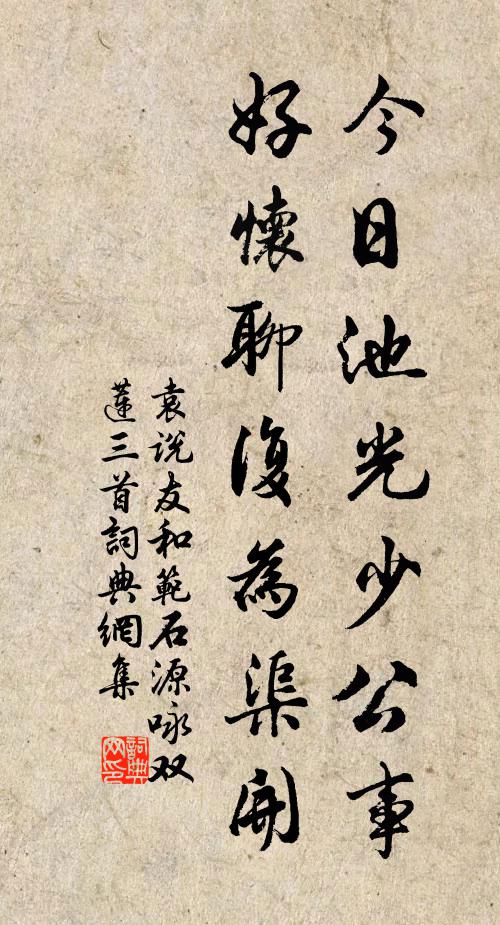 今日池光少公事
好懷聊復為渠開
袁説友和範石源咏双
蓮三首詞典網集
詞典网印